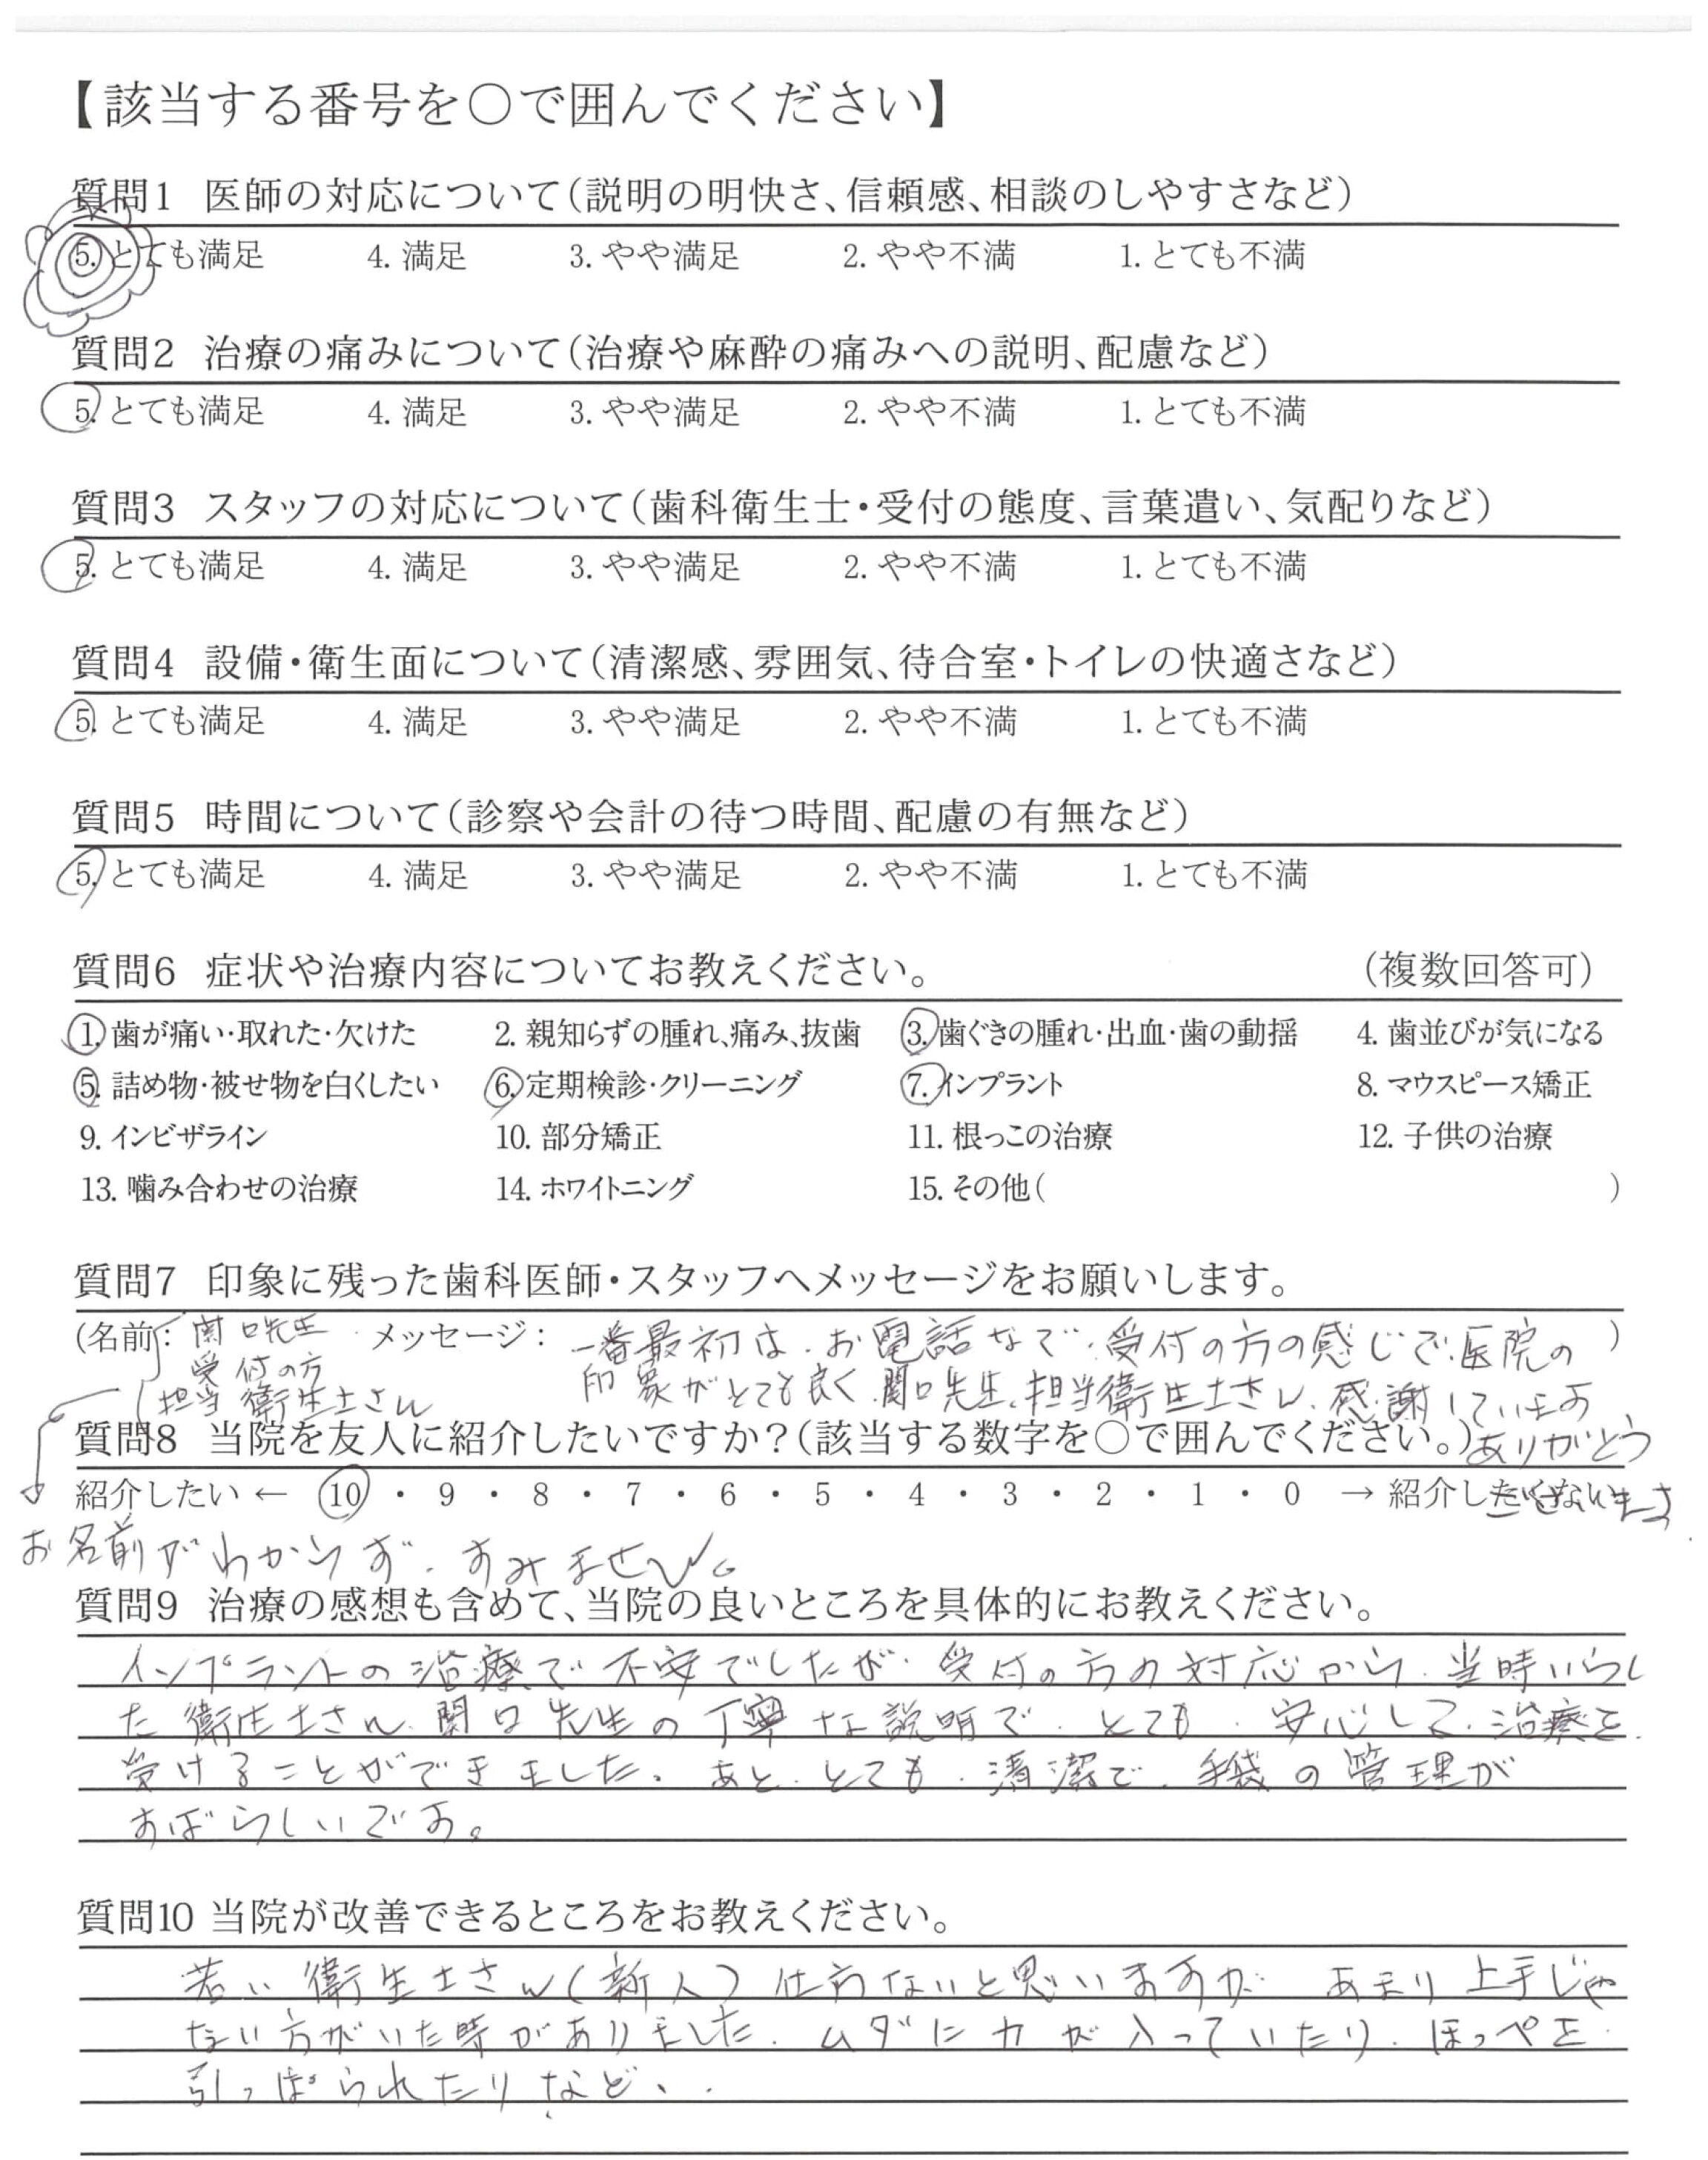 【該当する番号を○で囲んでください】
質問1 医師の対応について(説明の明快さ、信頼感、相談のしやすさなど)
5. とても満足 4. 満足 3. やや満足 2. やや不満 1. とても不満
質問2 治療の痛みについて(治療や麻酔の痛みへの説明、配慮など)
5. とても満足 4. 満足 3. やや満足 2. やや不満 1. とても不満
質問3 スタッフの対応について(歯科衛生士・受付の態度、言葉遣い、気配りなど)
5. とても満足 4. 満足 3. やや満足 2. やや不満 1. とても不満
質問4 設備・衛生面について(清潔感、雰囲気、待合室・トイレの快適さなど)
5. とても満足 4. 満足 3. やや満足 2. やや不満 1. とても不満
質問5 時間について(診察や会計の待つ時間、配慮の有無など)
5. とても満足 4. 満足 3. やや満足 2. やや不満 1. とても不満
質問6 症状や治療内容についてお教えください。 (複数回答可)
1. 歯が痛い・取れた・欠けた 2. 親知らずの腫れ、痛み、抜歯 3. 歯ぐきの腫れ・出血・歯の動揺 4. 歯並びが気になる
5. 詰め物・被せ物を白くしたい 6. 定期検診・クリーニング 7. インプラント 8. マウスピース矯正
9. インビザライン 10. 部分矯正 11. 根っこの治療 12. 子供の治療
13. 噛み合わせの治療 14. ホワイトニング 15. その他( )
質問7 印象に残った歯科医師・スタッフへメッセージをお願いします。
(名前: 関口先生 メッセージ: 一番最初は、お電話なで、受付の方の感じで、医院の )
受付の方 印象がとても良く、関口先生、担当衛生士さん、感謝しています
担当衛生士さん
質問8 当院を友人に紹介したいですか?(該当する数字を○で囲んでください。) ありがとう
紹介したい ← 10 ・ 9 ・ 8 ・ 7 ・ 6 ・ 5 ・ 4 ・ 3 ・ 2 ・ 1 ・ 0 → 紹介したくない ございます
お名前がわからず、すみません。
質問9 治療の感想も含めて、当院の良いところを具体的にお教えください。
インプラントの治療で不安でしたが、受付の方の対応から、当時いらし
た衛生士さん、関口先生の丁寧な説明で、とても、安心して、治療を
受けることができました。あと、とても、清潔で、手袋の管理が
すばらしいです。
質問10 当院が改善できるところをお教えください。
若い衛生士さん(新人)仕方ないと思いますが、あまり上手じゃ
ない方がいた時がありました。ムダに力が入っていたり、ほっぺを
引っぱられたりなど、、